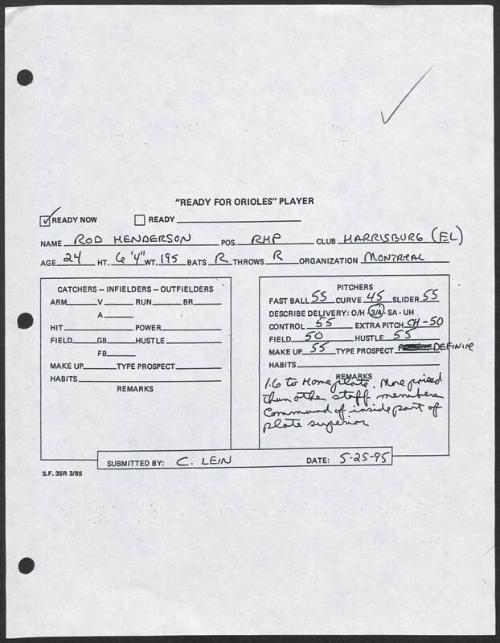 "READY FOR ORIOLES" PLAYER
READY NOW READY
NAME ROD HENDERSON POS. RHP CLUB HARRISBURG (EL)
AGE 24 HT. 6'4" WT. 195 BATS R THROWS R ORGANIZATION MONTREAL
CATCHERS - INFIELDERS - OUTFIELDERS
ARM V RUN BR
A
HIT POWER
FIELD GB HUSTLE
FB
MAKE UP TYPE PROSPECT
HABITS
REMARKS
PITCHERS
FAST BALL 55 CURVE 45 SLIDER 55
DESCRIBE DELIVERY: O/H 3/4 - SA - UH
CONTROL 55 EXTRA PITCH CH-50
FIELD 50 HUSTLE 55
MAKE UP 55 TYPE PROSPECT DEFINITE
HABITS
REMARKS
1.6 to Home plate. More poised
than other staff members
Command of inside part of
plate superior
SUBMITTED BY: C. LEIN DATE: 5-25-95
S.F. 35R 3/85